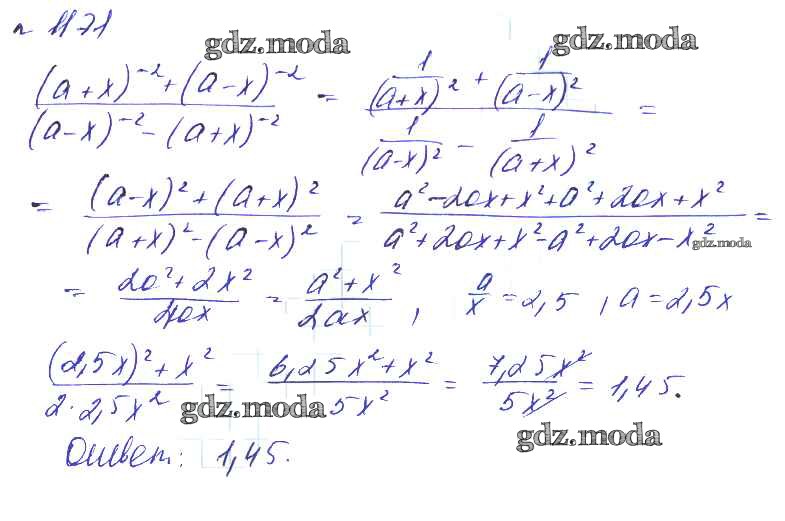 № 1171
gdz.moda gdz.moda
((a+x)⁻² + (a-x)⁻²)/((a-x)⁻² - (a+x)⁻²) = (1/(a+x)² + 1/(a-x)²)/(1/(a-x)² - 1/(a+x)²) =
= ((a-x)² + (a+x)²)/((a+x)² - (a-x)²) = (a² - 2ax + x² + a² + 2ax + x²)/(a² + 2ax + x² - a² + 2ax - x²) =
gdz.moda
= (2a² + 2x²)/(4ax) = (a² + x²)/(2ax) , a/x = 2,5 , a = 2,5x
((2,5x)² + x²)/(2·2,5x²) = (6,25x² + x²)/(5x²) = (7,25x²)/(5x²) = 1,45.
gdz.moda
gdz.moda
Ответ: 1,45.